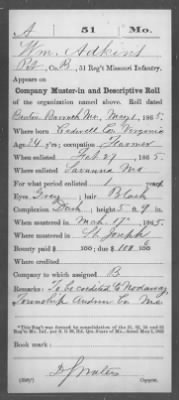 A 51 Mo.
Wm. Adkins
Pvt, Co. B, 51 Reg't Missouri Infantry.
Appears on
Company Muster-in and Descriptive Roll
of the organization named above. Roll dated
Benton Barracks Mo, May 1, 1865.
Where born Virginia
Age 24 y'rs; occupation Farmer
When enlisted Feb 27, 1865.
Where enlisted Savanna Mo
For what period enlisted 1 year
Eyes Grey; hair Black
Complexion Dark; height 5 ft. 9 in.
When mustered in Mch 17, 1865.
Where mustered in St. Joseph
Bounty paid $ 100; due $ 100
Where credited
Company to which assigned B
Remarks: To be credited to Nodaway
Township Andrew Co Mo
Book mark:
Copyist.